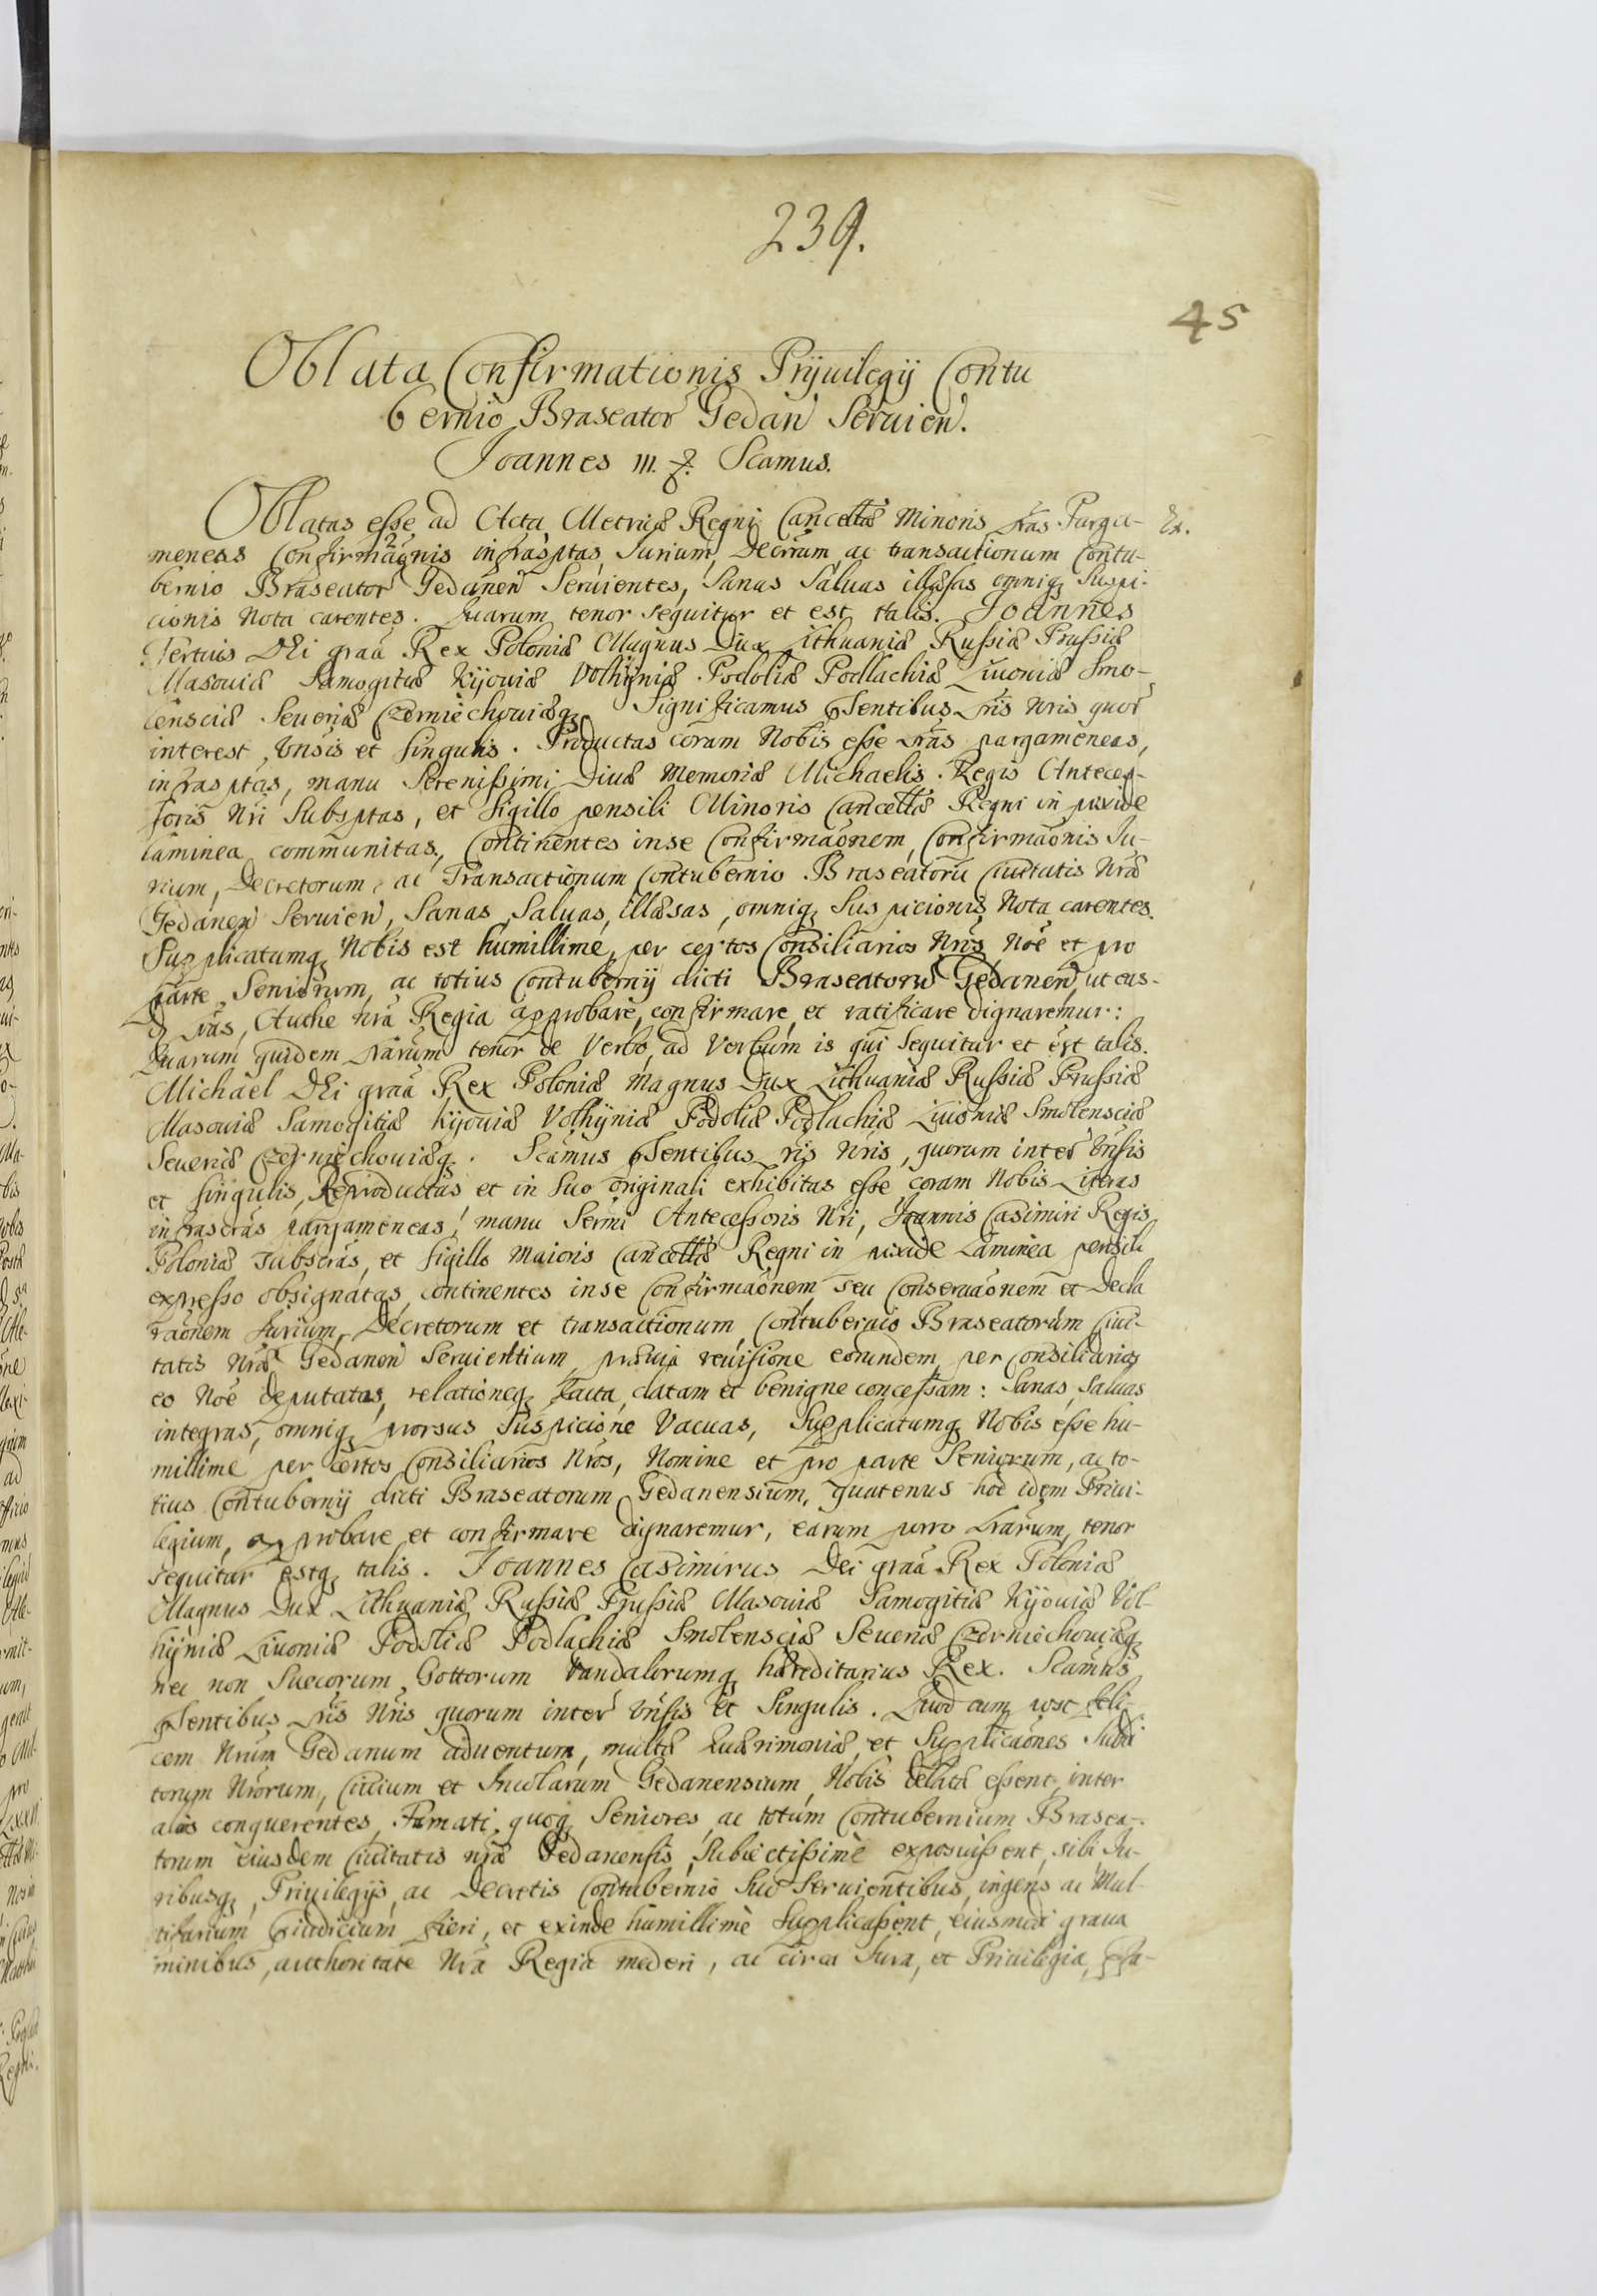 239.
45
Oblata Confirmationis Priuilegij Contu
bernio Braseator Gedan Seruien.
Joannes III. Scamus.
Oblatas esse ad Acta Metricæ Regni Cancellæ Minoris Lras Parga- Ex.
meneas Confirmaonis infrasptas Jurium, Decrrum, ac transactionum Contu-
bernio Braseator Gedanen Seruientes, Sanas Saluas illæsas omniq Suspi-
cionis Nota carentes. Quarum tenor sequitur et est talis. Joannes
Tertius Dei graa Rex Poloniæ Magnus Dux Lithuaniæ Russiæ Prussiæ
Masouiæ Samogitiæ Kijouiæ Volhyniæ Podoliæ Podlachiæ Liuoniæ Smo-
lensciæ Seueriæ Czerniechouiæq. Significamus pSentibus Lris Nris quor
interest, Vnsis et singulis. Productas coram Nobis esse Lras pargameneas,
infrasptas, manu Serenissimi Diuæ Memoriæ Michaelis Regis Anteces-
soris Nri Subsptas, et Sigillo pensili Minoris Cancellæ Regni in pixide
laminea communitas, Continentes in se Confirmaonem, Confirmaonis Ju-
rium, Decretorum, ac Transactionum Contubernio Braseatoru Ciuitatis Nræ
Gedanen Seruien, Sanas, Saluas, illæsas, omniq Suspicionis Nota carentes.
Supplicatumq Nobis est humillime, per certos Consiliarios Nros, Noe et pro
parte Seniorum, ac totius Contubernij dicti Braseatoru Gedanen, ut eas-
d Lras, Authe nra Regia approbare, confirmare, et ratificare dignaremur:
Quarum quidem Lrarum tenor de Verbo ad Verbum is qui Sequitur et est talis.
Michael Dei graa Rex Poloniæ Magnus Dux Lithuaniæ Russiæ Prussiæ
Masouiæ Samogitiæ Kijouiæ Volhyniæ Podoliæ Podlachiæ Liuoniæ Smolensciæ
Seueriæ Czerniechouiæq. Scamus pSentibus Lris Nris, quorum inter Vnsis
et singulis, Reproductas et in Suo originali exhibitas esse coram Nobis Literas
infrascras pargameneas, manu Sermi Antecessoris Nri, Joannis Casimiri Regis
Poloniæ Subscras, et sigillo Maioris Cancellæ Regni in pixide Laminea pensili
expresso obsignatas, continentes in se Confirmaonem, seu Conseruaonem et Decla
raonem Jurium, Decretorum et transactionum, Contubernio Braseatorum Ciui-
tatis Nræ Gedanen Seruientium, præuia reuisione eorundem, per Consiliarios
eo Noe deputatas, relationeq facta, datam et benigne concessam: Sanas, Saluas
integras, omniq prorsus Suspicione Vacuas, Supplicatumq Nobis esse hu-
millime per certos Consiliarios Nros, Nomine et pro parte Seniorum, ac to-
tius Contubernij dicti Braseatorum Gedanensium, quatenus hoc idem Priui-
legium, approbare et confirmare dignaremur, earum porro Lrarum, tenor
sequitur estq talis. Joannes Casimirus Dei graa Rex Poloniæ
Magnus Dux Lithuaniæ Russiæ Prussiæ Masouiæ Samogitiæ Kijouiæ Vol-
hyniæ Liuoniæ Podoliæ Podlachiæ Smolensciæ Seueriæ Czerniechouiæq
nec non Suecorum Gottorum Vandalorumq hæreditarius Rex. Scamus
pSentibus Lris Nris quorum inter Vnsis et Singulis. Quod cum post feli-
cem Nrum Gedanum aduentum, multæ Quærimoniæ, et Supplicaones Subdi
torum Nrorum, Ciuium et Incolarum Gedanensium, Nobis delatæ essent, inter
alios conquerentes, Famati quoq Seniores, ac totum Contubernium Brasea-
torum eiusdem Ciuitatis nræ Gedanensis, Subiectissimè exposuissent, sibi Ju-
ribusq, Priuilegijs, ac Decretis Contubernio Suo Seruientibus, ingens ac Mul-
tifarium pIudicium fieri, et exinde humillimè Supplicassent, eiusmodi graua
minibus, authoritate Nra Regia mederi, ac circa Jura, et Priuilegia,